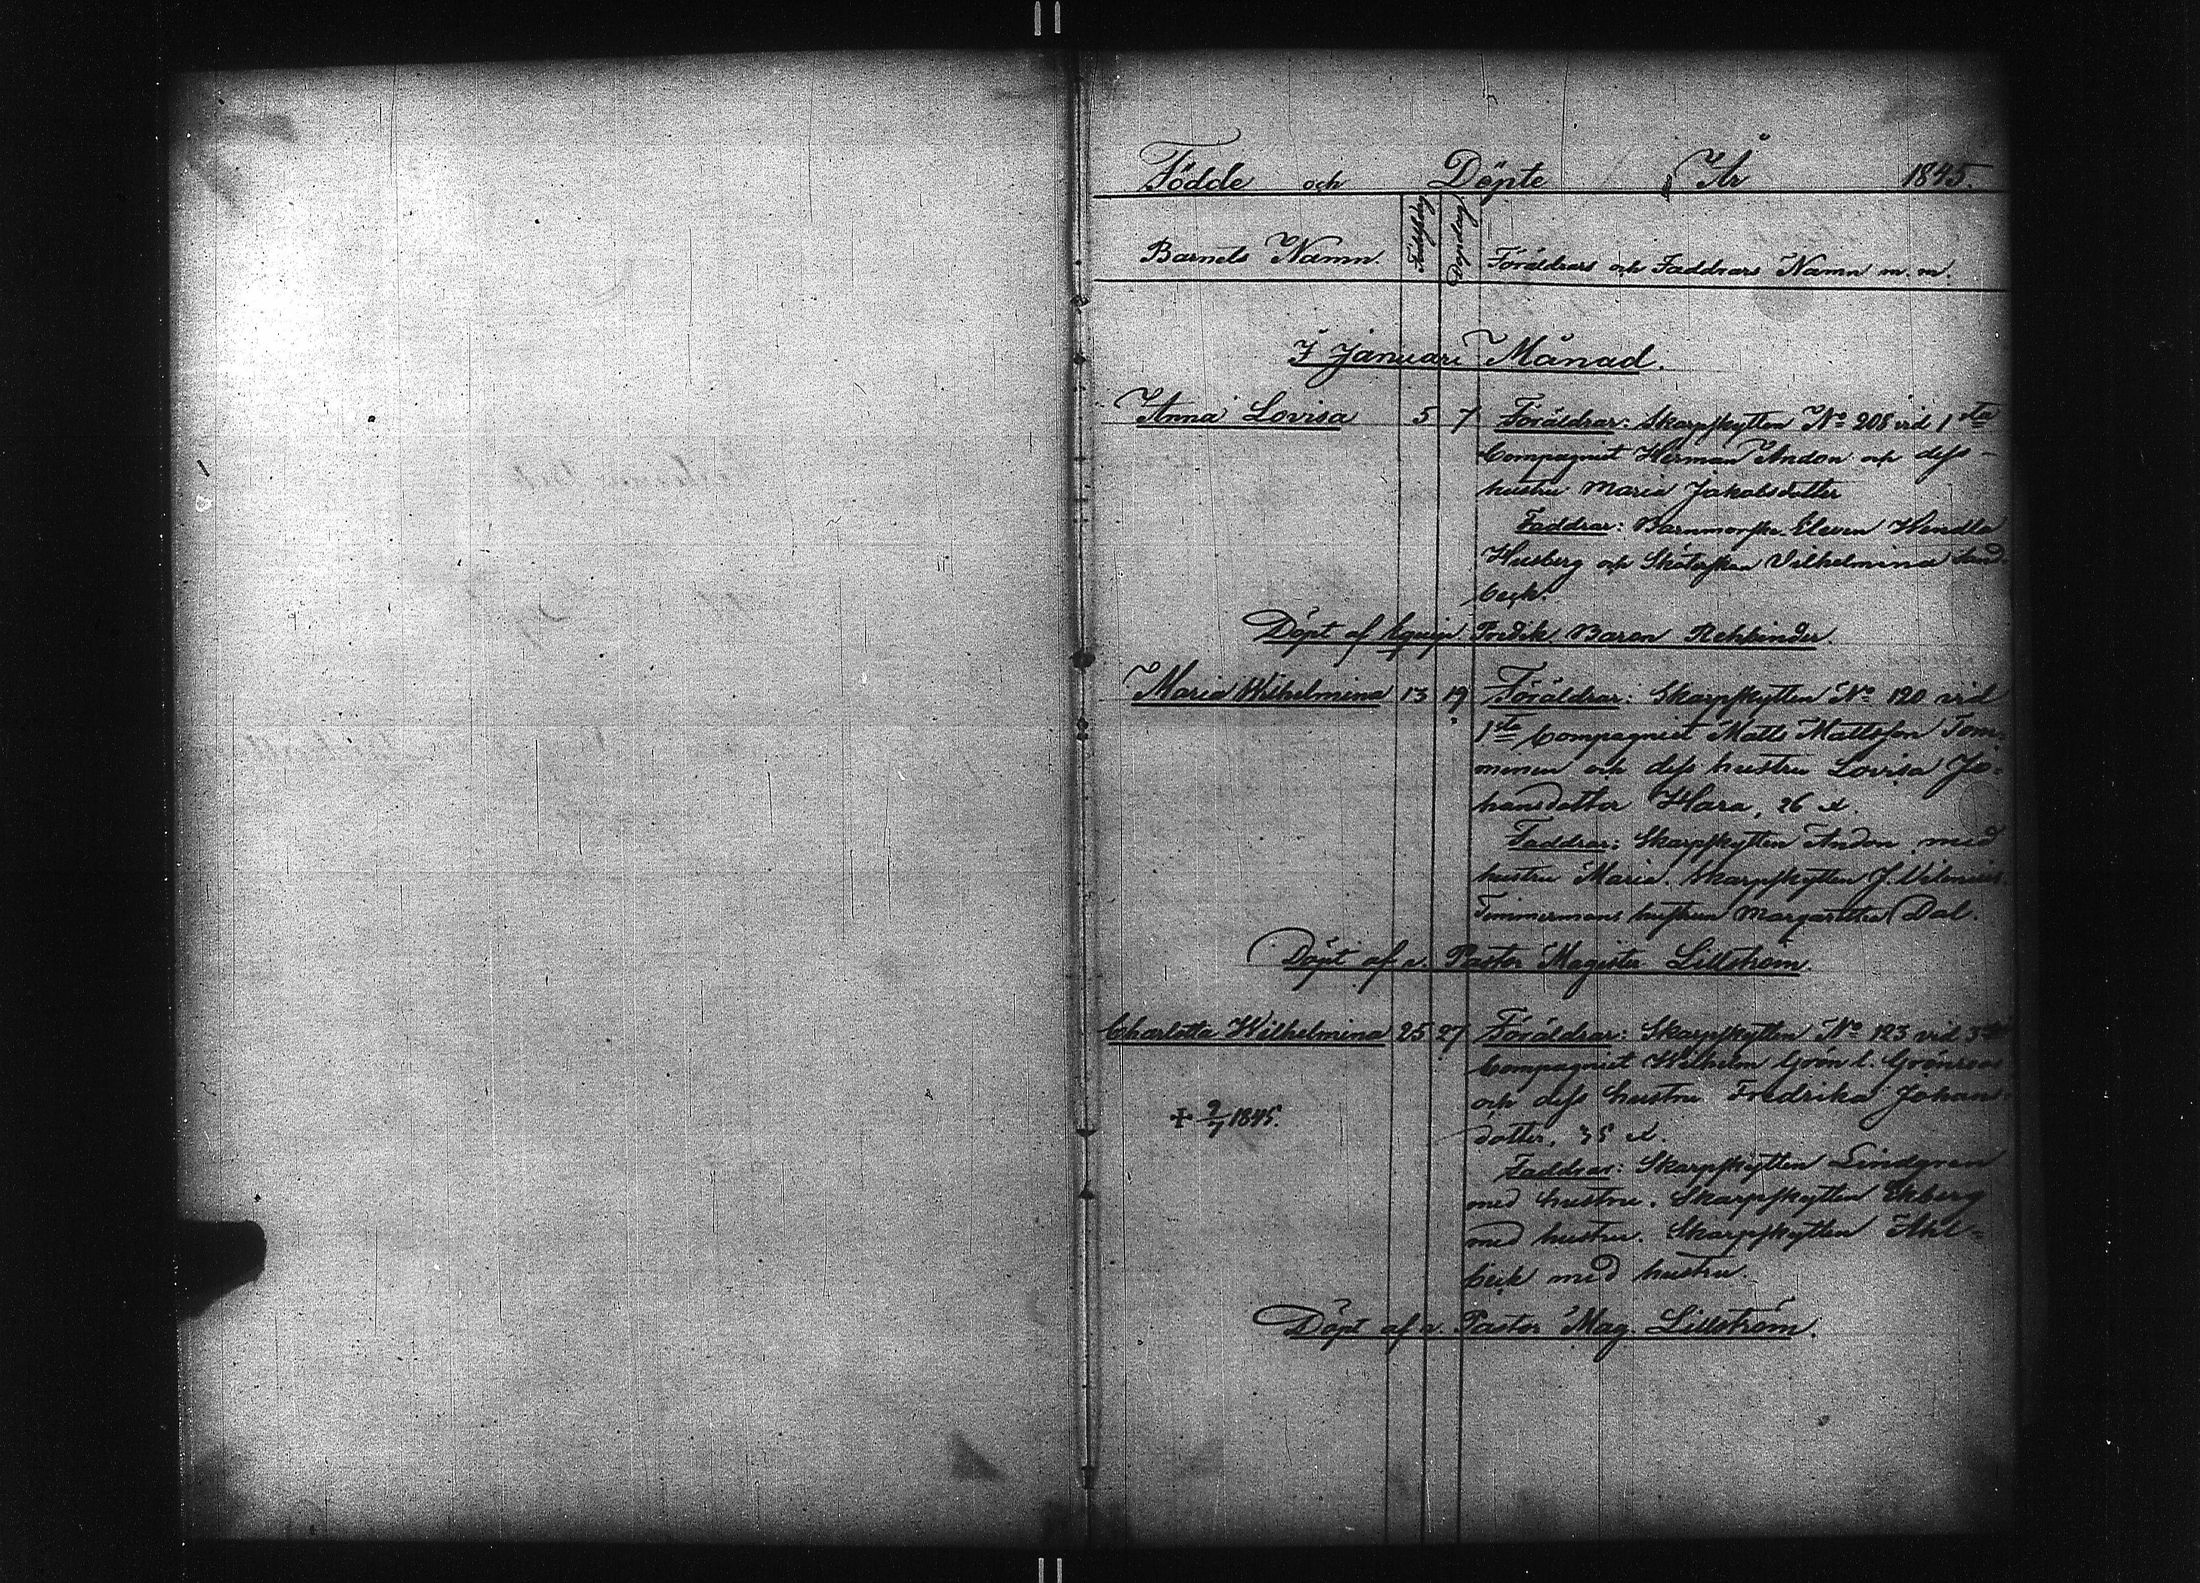 Födde och Döpte År 1845.
Barnets Namn. Födelsedag Döpelsedag Föräldrars och Faddrars Namn m. m.
I Januari Månad.
Anna Lovisa 5 7 Föräldrar: Skarpskytten No 208 vid 1sta
Compagniet Herman Andon och dess
hustru Maria Jakobsdotter
Faddrar: Barnmorske Eleven Hendla
Husberg och Sköterskan Vilhelmina Sand-
beck.
Döpt af Predik Baron Rehbinder
Maria Wilhelmina 13 19 Föräldrar: Skarpskytten No 120 vid
1sta Compagniet Matts Mattsson Tom-
minen och dess hustru Lovisa Jo-
hansdotter Hara, 26 år.
Faddrar: Skarpskytten Andon med
hustru Maria. Skarpskytten J.
Timmermans hustrun Margaretha Dal.
Döpt af v. Pastor Magister Lillström.
Charlotta Wilhelmina 25 27 Föräldrar: Skarpskytten No 123 vid 3dje
Compagniet Wilhelm Grön l. Grönroos
och dess hustru Fredrika Johans-
dotter, 35 år.
+ 9/7 1845.
Faddrar: Skarpskytten Lindgren
med hustru. Skarpskytten Ekberg
med hustru. Skarpskytten Ahl-
beck med hustru.
Döpt af v. Pastor Mag. Lillström.